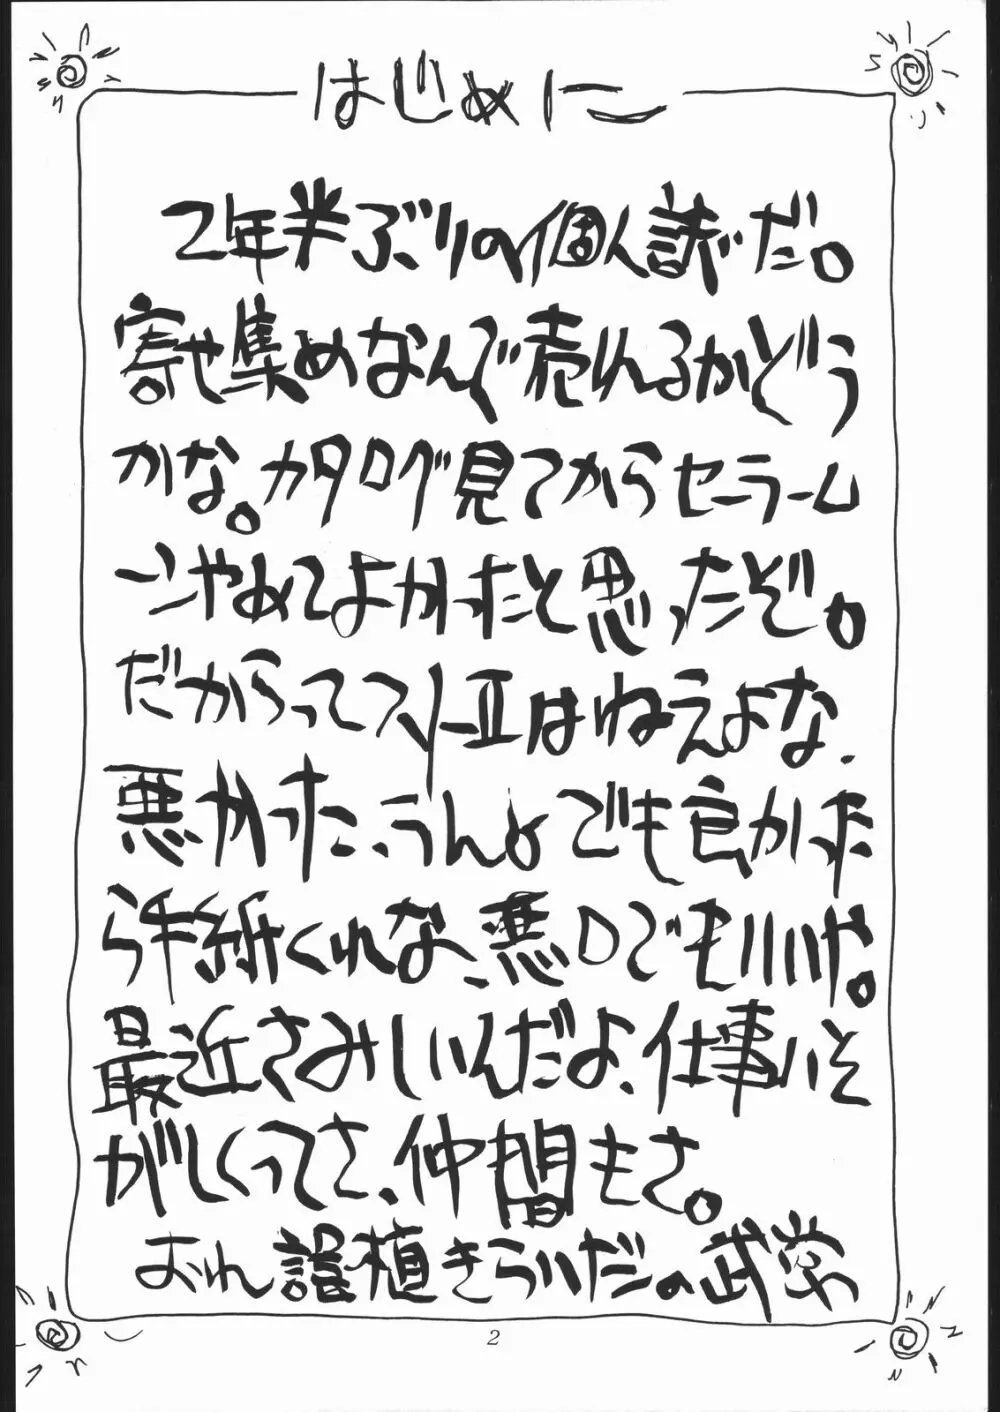 はじめに
2年半ぶりの個人誌だ。
寄せ集めなんで売れるかどう
かな。カタログ見てからセーラーム
ーンやめてよかったと思ったぞ。
だからってスパⅡはねえよな、
悪かった、うん。でも良かった
ら手紙くれな、悪口でもいいや。
最近さみしいんだよ、仕事いそ
がしくってさ、仲間もさ。
おれ誤植きらいだ。武学
2